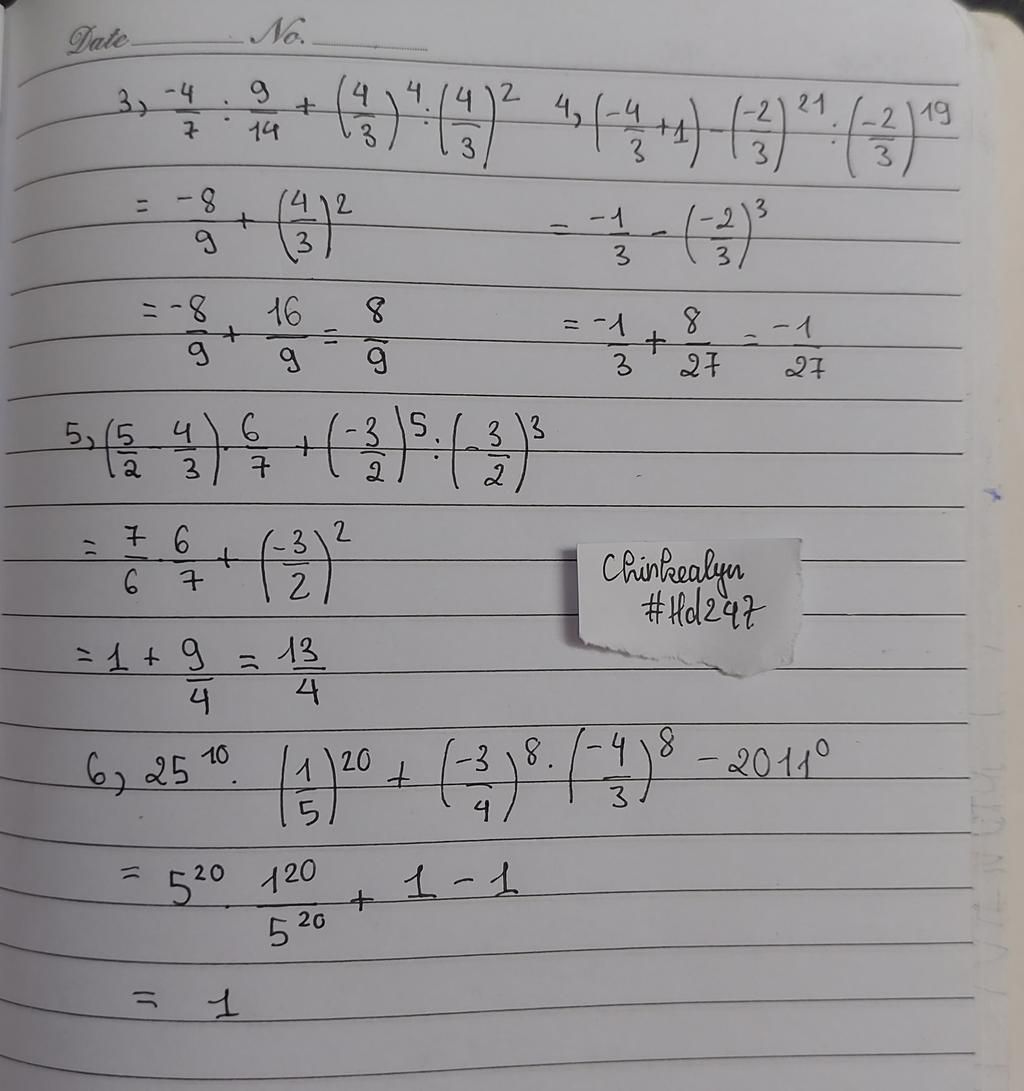 Date No.
3, -4/7 : 9/14 + (4/3)^4 : (4/3)^2
= -8/9 + (4/3)^2
= -8/9 + 16/9 = 8/9
4, (-4/3 + 1) - (-2/3)^21 : (-2/3)^19
= -1/3 - (-2/3)^3
= -1/3 + 8/27 = -1/27
5, (5/2 - 4/3) . 6/7 + (-3/2)^5 : (-3/2)^3
= 7/6 . 6/7 + (-3/2)^2
= 1 + 9/4 = 13/4
Chinkealyn
#Hd247
6, 25^10 . (1/5)^20 + (-3/4)^8 . (-4/3)^8 - 2011^0
= 5^20 . 1^20/5^20 + 1 - 1
= 1